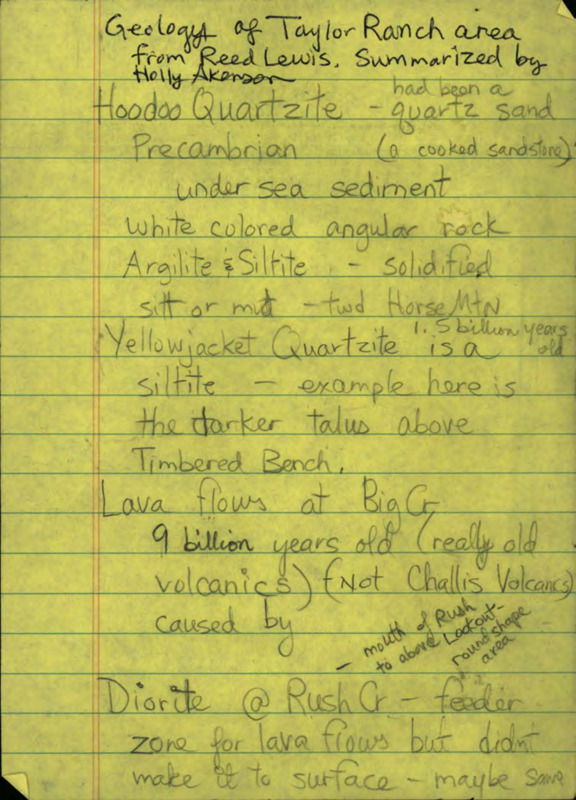 Geology of Taylor Ranch area
from Reed Lewis. Summarized by
Holly Akenson
had been a
Hoodoo Quartzite - quartz sand
Precambrian (a cooked sandstone)
under sea sediment
white colored angular rock
Argilite & Siltite - solidified
silt or mud - twd Horse Mtn
1.5 billion years old
Yellowjacket Quartzite is a
siltite - example here is
the darker talus above
Timbered Bench.
Lava flows at Big Cr
9 billion years old (really old
volcanics) (Not Challis Volcanics)
caused by
- mouth of Rush
to above Lookout-
round shape
area
Diorite @ Rush Cr - feeder
zone for lava flows but didn't
make it to surface - maybe same